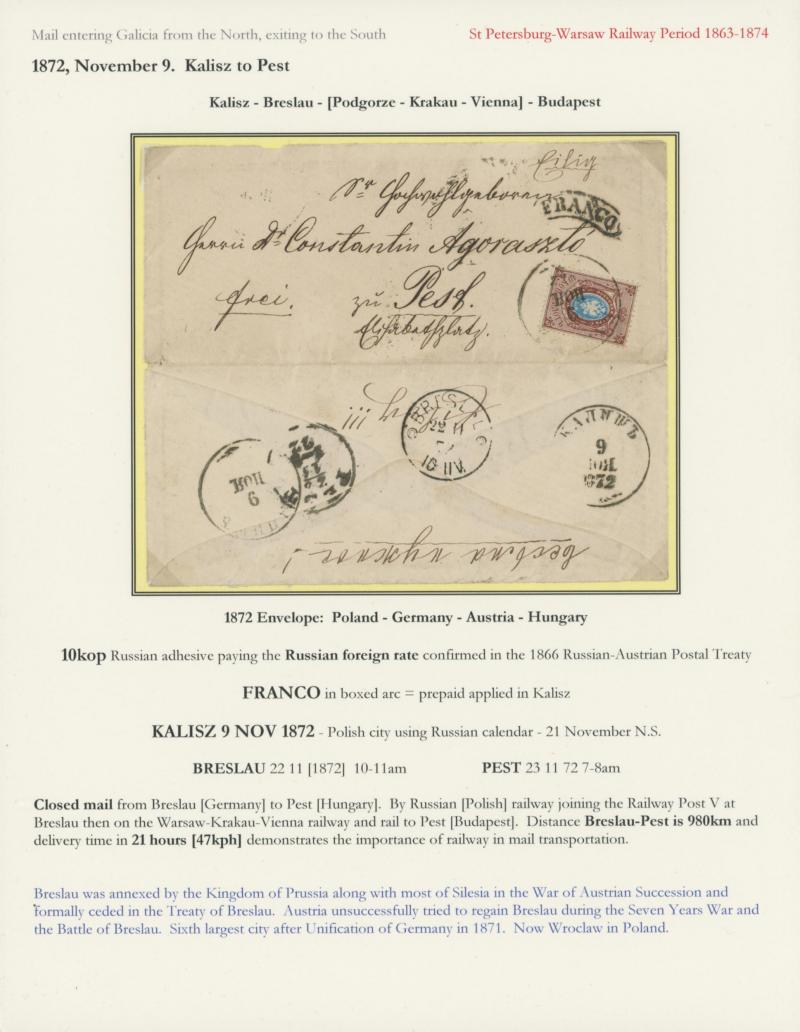 Mail entering Galicia from the North, exiting to the South
St Petersburg-Warsaw Railway Period 1863-1874
1872, November 9. Kalisz to Pest
Kalisz - Breslau - [Podgorze - Krakau - Vienna] - Budapest
Eilig
Sr Hochwohlgeboren
FRANCO
Herrn Dr Constantin Agorasztó
frei.
zu Pest.
Elisabethplatz.
НОЯ
BRESLAU
22 11
10-11 V.
КАЛИШЪ
9
НОЯ
1872
НОЯ
9
1872 Envelope: Poland - Germany - Austria - Hungary
10kop Russian adhesive paying the Russian foreign rate confirmed in the 1866 Russian-Austrian Postal Treaty
FRANCO in boxed arc = prepaid applied in Kalisz
KALISZ 9 NOV 1872 - Polish city using Russian calendar - 21 November N.S.
BRESLAU 22 11 [1872] 10-11am
PEST 23 11 72 7-8am
Closed mail from Breslau [Germany] to Pest [Hungary]. By Russian [Polish] railway joining the Railway Post V at
Breslau then on the Warsaw-Krakau-Vienna railway and rail to Pest [Budapest]. Distance Breslau-Pest is 980km and
delivery time in 21 hours [47kph] demonstrates the importance of railway in mail transportation.
Breslau was annexed by the Kingdom of Prussia along with most of Silesia in the War of Austrian Succession and
formally ceded in the Treaty of Breslau. Austria unsuccessfully tried to regain Breslau during the Seven Years War and
the Battle of Breslau. Sixth largest city after Unification of Germany in 1871. Now Wroclaw in Poland.